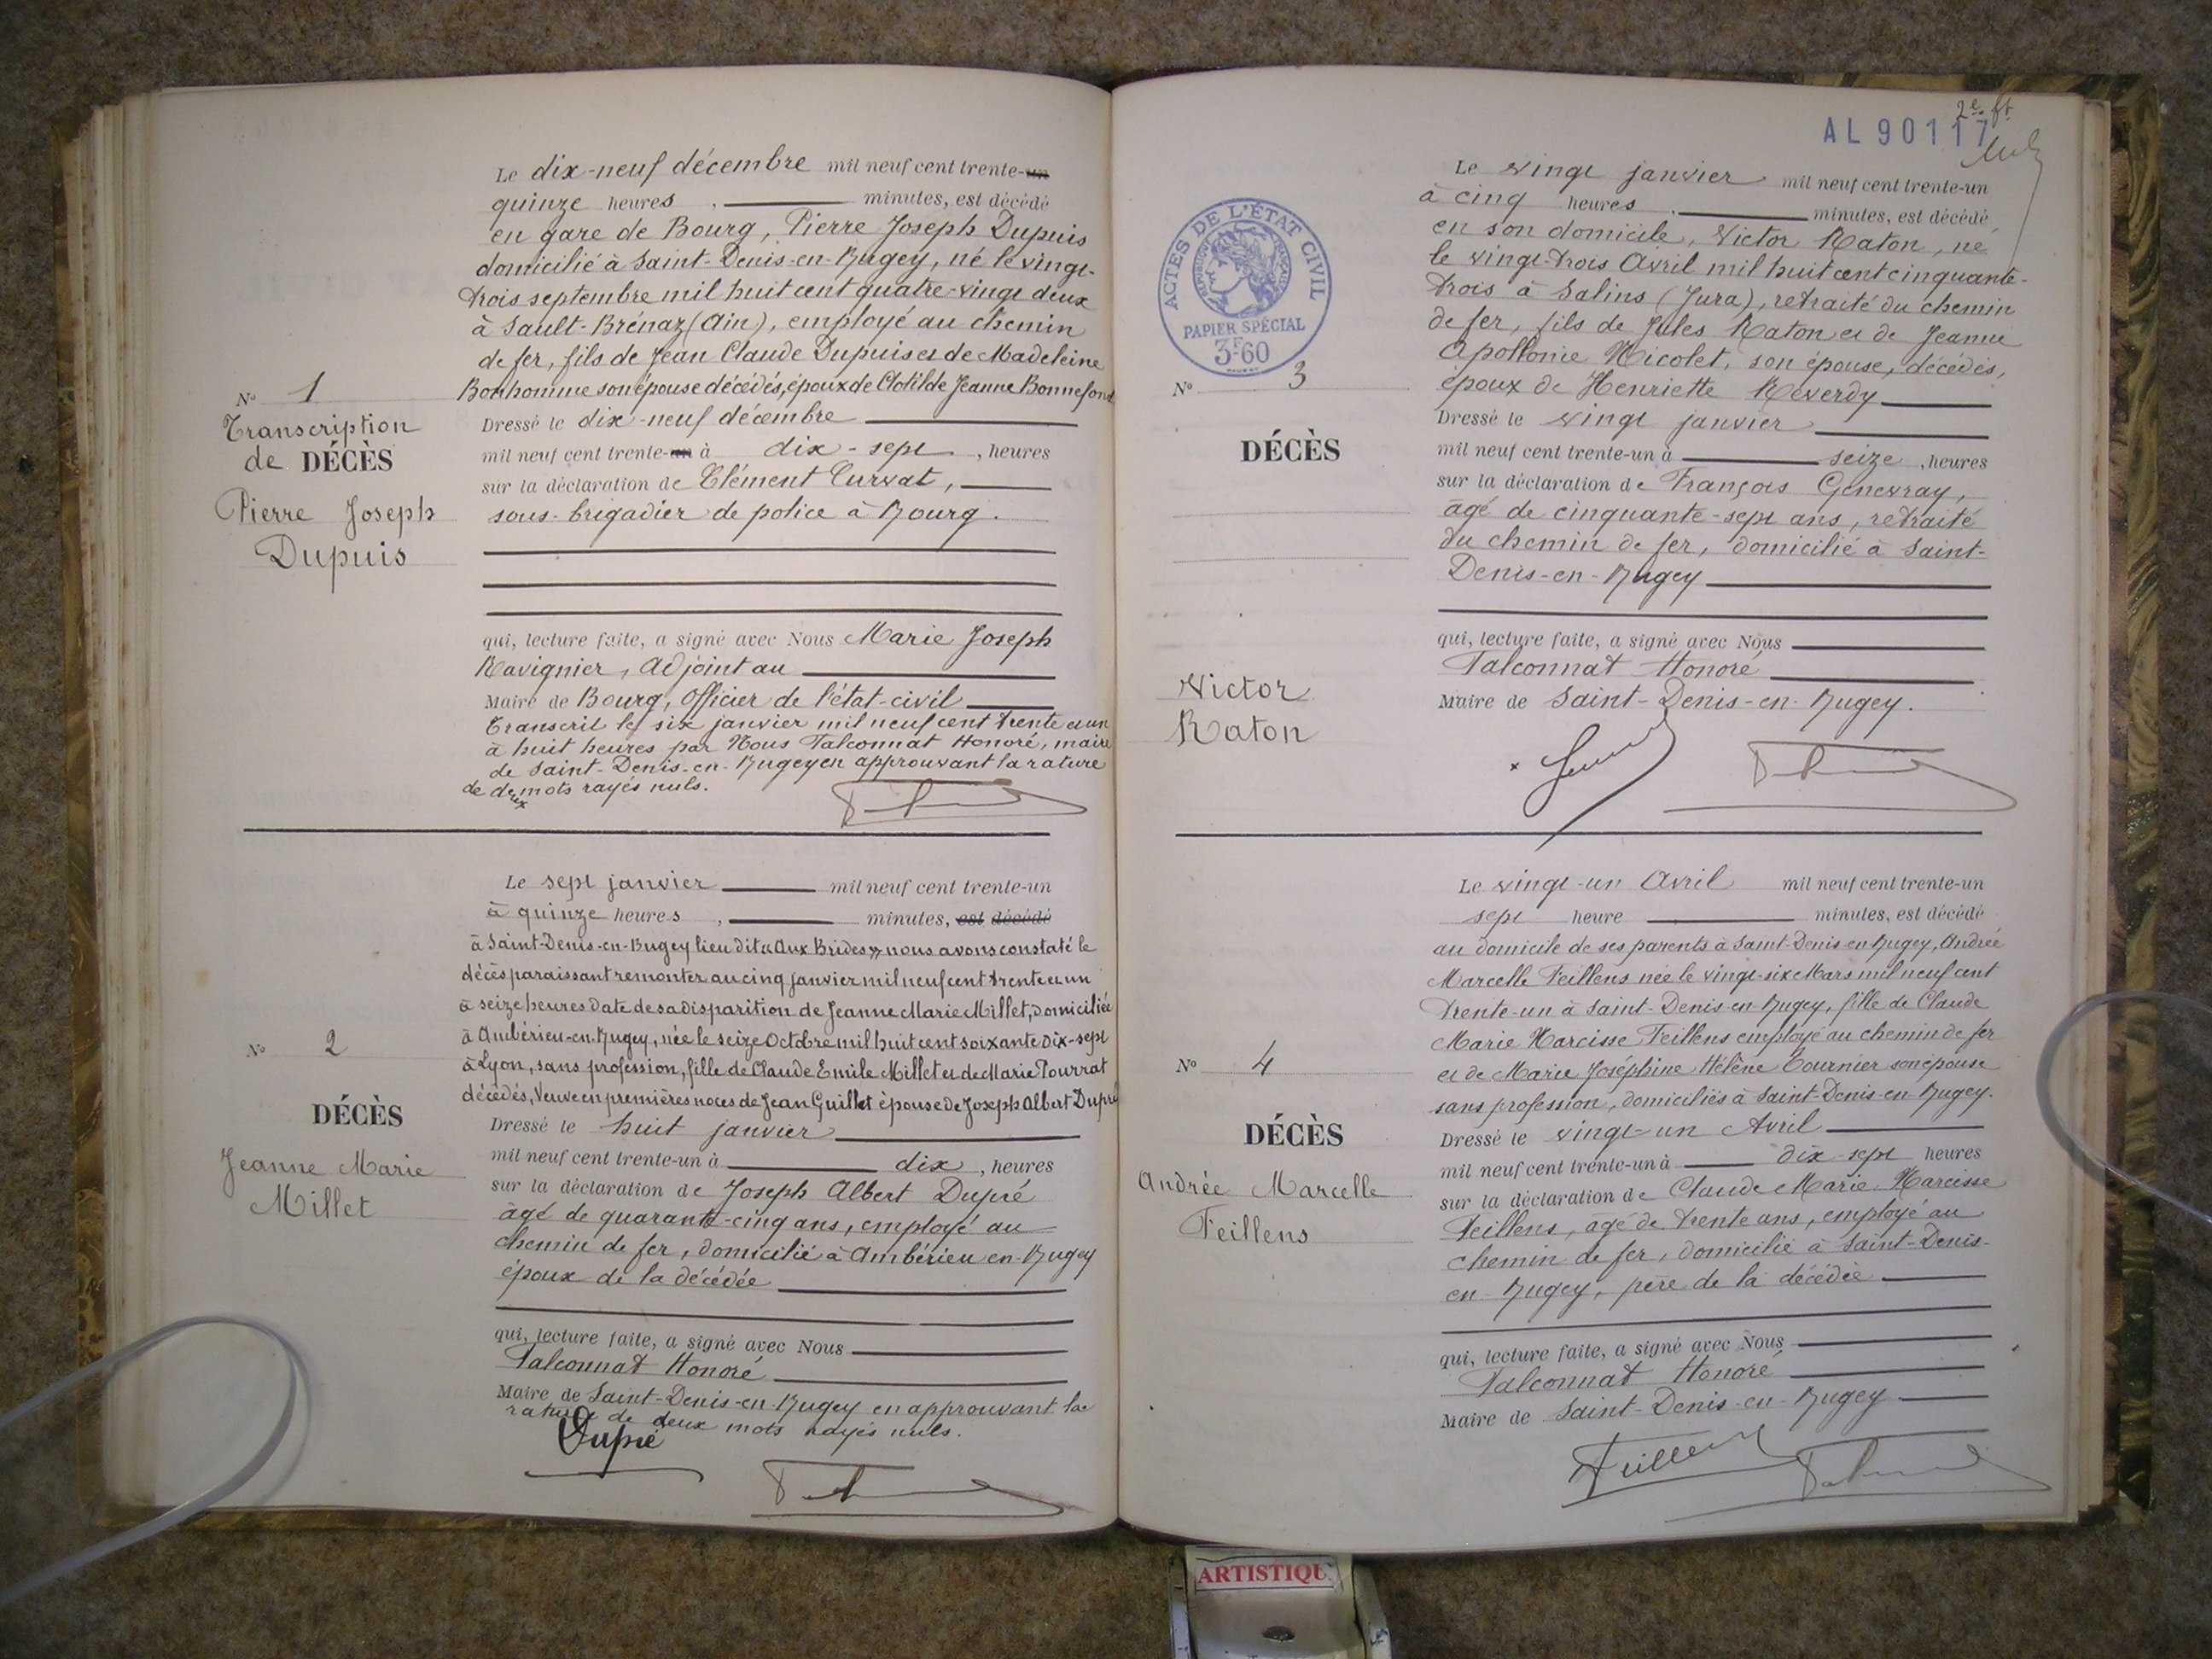 Le dix-neuf décembre mil neuf cent trente-un
quinze heures, minutes, est décédé
en gare de Bourg, Pierre Joseph Dupuis
domicilié à Saint-Denis-en-Bugey, né le vingt-
trois septembre mil huit cent quatre-vingt deux
à Sault-Brénaz (Ain), employé au chemin
de fer, fils de Jean Claude Dupuis et de Madeleine
Bonhomme son épouse décédés, époux de Clotilde Jeanne Bonnefond
Nº 1
Transcription
de DÉCÈS
Pierre Joseph
Dupuis
Dressé le dix-neuf décembre
mil neuf cent trente-un à dix-sept, heures
sur la déclaration de Clément Curvat,
sous-brigadier de police à Bourg.
qui, lecture faite, a signé avec Nous Marie Joseph
Ravignier, Adjoint au
Maire de Bourg, Officier de l'état-civil
Transcrit le six janvier mil neuf cent trente et un
à huit heures par Nous Falconnat Honoré, maire
de Saint-Denis-en-Bugey en approuvant la rature
de deux mots rayés nuls.
Le sept janvier mil neuf cent trente-un
à quinze heures, minutes, est décédé
à Saint-Denis-en-Bugey lieu dit « Aux Brides » nous avons constaté le
décès paraissant remonter au cinq janvier mil neuf cent trente et un
à seize heures date de sa disparition de Jeanne Marie Millet, domiciliée
à Ambérieu-en-Bugey, née le seize Octobre mil huit cent soixante dix-sept
à Lyon, sans profession, fille de Claude Emile Millet et de Marie Pourrat
décédés, Veuve en premières noces de Jean Guillet épouse de Joseph Albert Dupré
Nº 2
DÉCÈS
Jeanne Marie
Millet
Dressé le huit janvier
mil neuf cent trente-un à dix, heures
sur la déclaration de Joseph Albert Dupré
âgé de quarante-cinq ans, employé au
chemin de fer, domicilié à Ambérieu-en-Bugey
époux de la décédée
qui, lecture faite, a signé avec Nous
Falconnat Honoré
Maire de Saint-Denis-en-Bugey en approuvant la
rature de deux mots rayés nuls.
Dupré
2e ft
AL 90117
ACTES DE L'ÉTAT CIVIL
RÉPUBLIQUE FRANÇAISE
PAPIER SPÉCIAL
3F60
Le vingt janvier mil neuf cent trente-un
à cinq heures, minutes, est décédé
en son domicile, Victor Raton, né
le vingt-trois Avril mil huit cent cinquante-
trois à Salins (Jura), retraité du chemin
de fer, fils de Jules Raton et de Jeanne
Apollonie Nicolet, son épouse, décédés,
époux de Henriette Reverdy
Nº 3
DÉCÈS
Victor
Raton
Dressé le vingt janvier
mil neuf cent trente-un à seize, heures
sur la déclaration de François Genevray,
âgé de cinquante-sept ans, retraité
du chemin de fer, domicilié à Saint-
Denis-en-Bugey
qui, lecture faite, a signé avec Nous
Falconnat Honoré
Maire de Saint-Denis-en-Bugey.
Le vingt-un Avril mil neuf cent trente-un
sept heure minutes, est décédé
au domicile de ses parents à Saint-Denis-en-Bugey, Andrée
Marcelle Feillens née le vingt-six Mars mil neuf cent
trente-un à Saint-Denis-en-Bugey, fille de Claude
Marie Narcisse Feillens employé au chemin de fer
et de Marie Joséphine Hélène Tournier son épouse
sans profession, domiciliés à Saint-Denis-en-Bugey.
Nº 4
DÉCÈS
Andrée Marcelle
Feillens
Dressé le vingt-un Avril
mil neuf cent trente-un à dix-sept heures
sur la déclaration de Claude Marie Narcisse
Feillens, âgé de trente ans, employé au
chemin de fer, domicilié à Saint-Denis-
en-Bugey, père de la décédée
qui, lecture faite, a signé avec Nous
Falconnat Honoré
Maire de Saint-Denis-en-Bugey
Feillens
ARTISTIQU